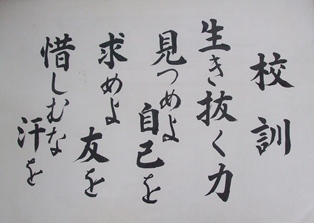 校訓
生き抜く力
見つめよ自己を
求めよ友を
惜しむな汗を